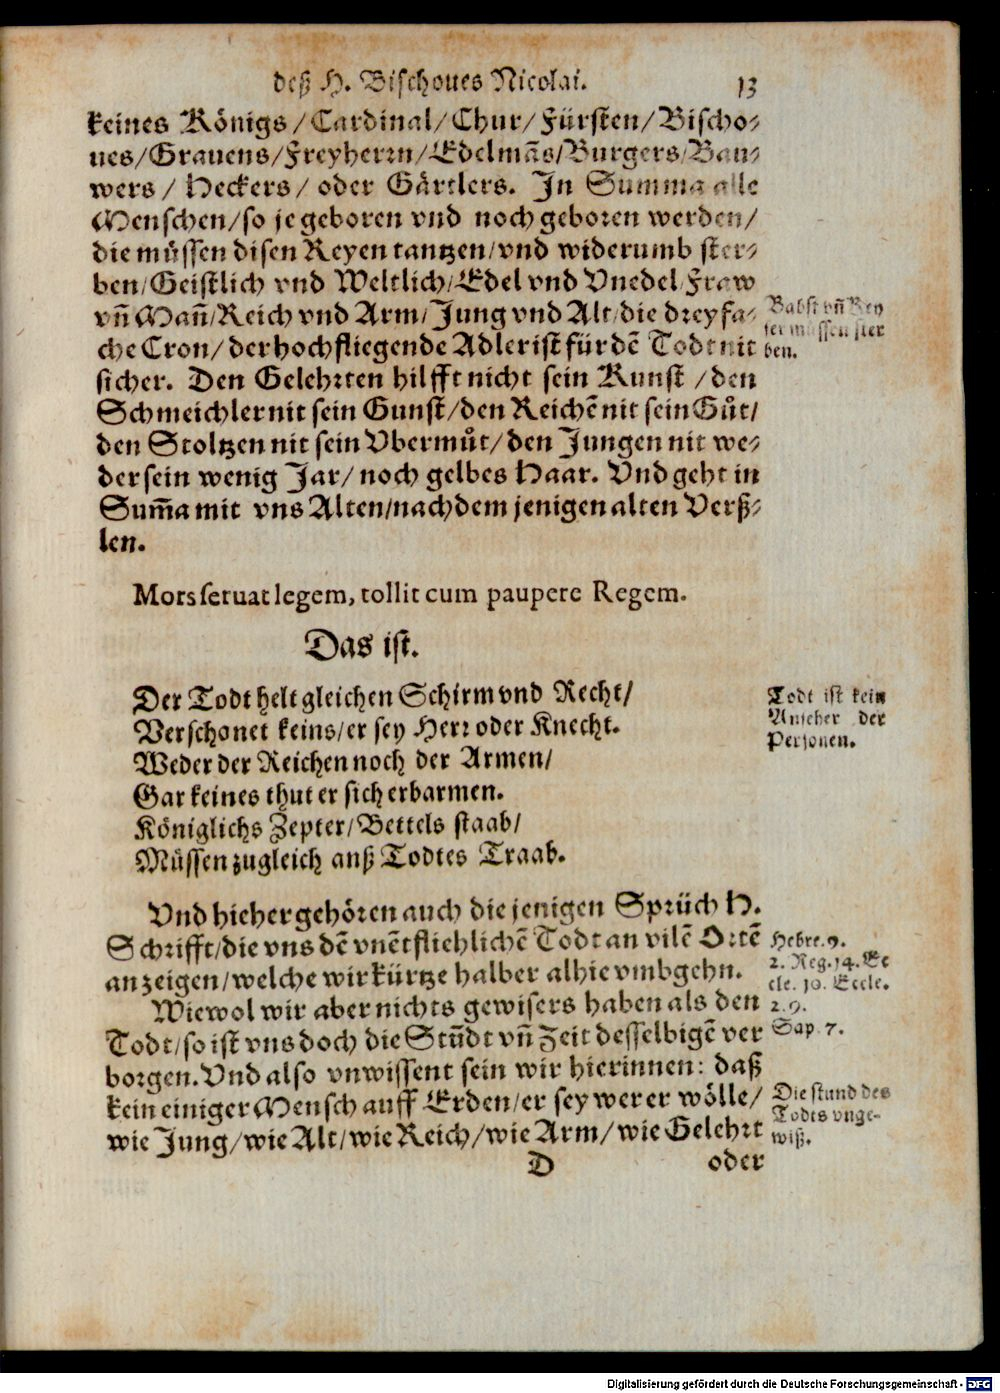 deß H. Bischoues Nicolai. 13
keines Königs/Cardinal/Chur/Fürsten/Bischo⸗
ues/Grauens/Freyherrn/Edelmãs/Burgers/Bau⸗
wers/Heckers/oder Gärtlers. In Summa alle
Menschen/so je geboren vnd noch geboren werden/
die müssen disen Reyen tantzen/vnd widerumb ster⸗
ben/Geistlich vnd Weltlich/Edel vnd Vnedel/Fraw
vñ Mañ/Reich vnd Arm/Jung vnd Alt/die dreyfa⸗
che Cron/der hochfliegende Adler ist für dẽ Todt nit
sicher. Den Gelehrten hilfft nicht sein Kunst/den
Schmeichler nit sein Gunst/den Reichẽ nit sein Gůt/
den Stoltzen nit sein Vbermůt/den Jungen nit we⸗
der sein wenig Jar/noch gelbes Haar. Vnd geht in
Sum̃a mit vns Alten/nach dem jenigen alten Verß⸗
len.
Babst vñ Key
ser müssen ster
ben.
Mors seruat legem, tollit cum paupere Regem.
Das ist.
Der Todt helt gleichen Schirm vnd Recht/
Verschonet keins/er sey Herr oder Knecht.
Weder der Reichen noch der Armen/
Gar keines thut er sich erbarmen.
Königlichs Zepter/Bettels staab/
Müssen zugleich anß Todtes Traab.
Todt ist kein
Anseher der
Personen.
Vnd hieher gehören auch die jenigen Sprüch H.
Schrifft/die vns dẽ vnẽtfliehlichẽ Todt an vilẽ Ortẽ
anzeigen/welche wir kürtze halber alhie vmbgehn.
Wiewol wir aber nichts gewisers haben als den
Todt/so ist vns doch die Stũdt vñ Zeit desselbigẽ ver
borgen. Vnd also vnwissent sein wir hierinnen: daß
kein einiger Mensch auff Erden/er sey wer er wölle/
wie Jung/wie Alt/wie Reich/wie Arm/wie Gelehrt
Hebre. 9.
2. Reg. 14. Ec
cle. 10. Eccle.
2. 9.
Sap. 7.
Die stund des
Todts vnge-
wiß.
D oder
Digitalisierung gefördert durch die Deutsche Forschungsgemeinschaft - DFG